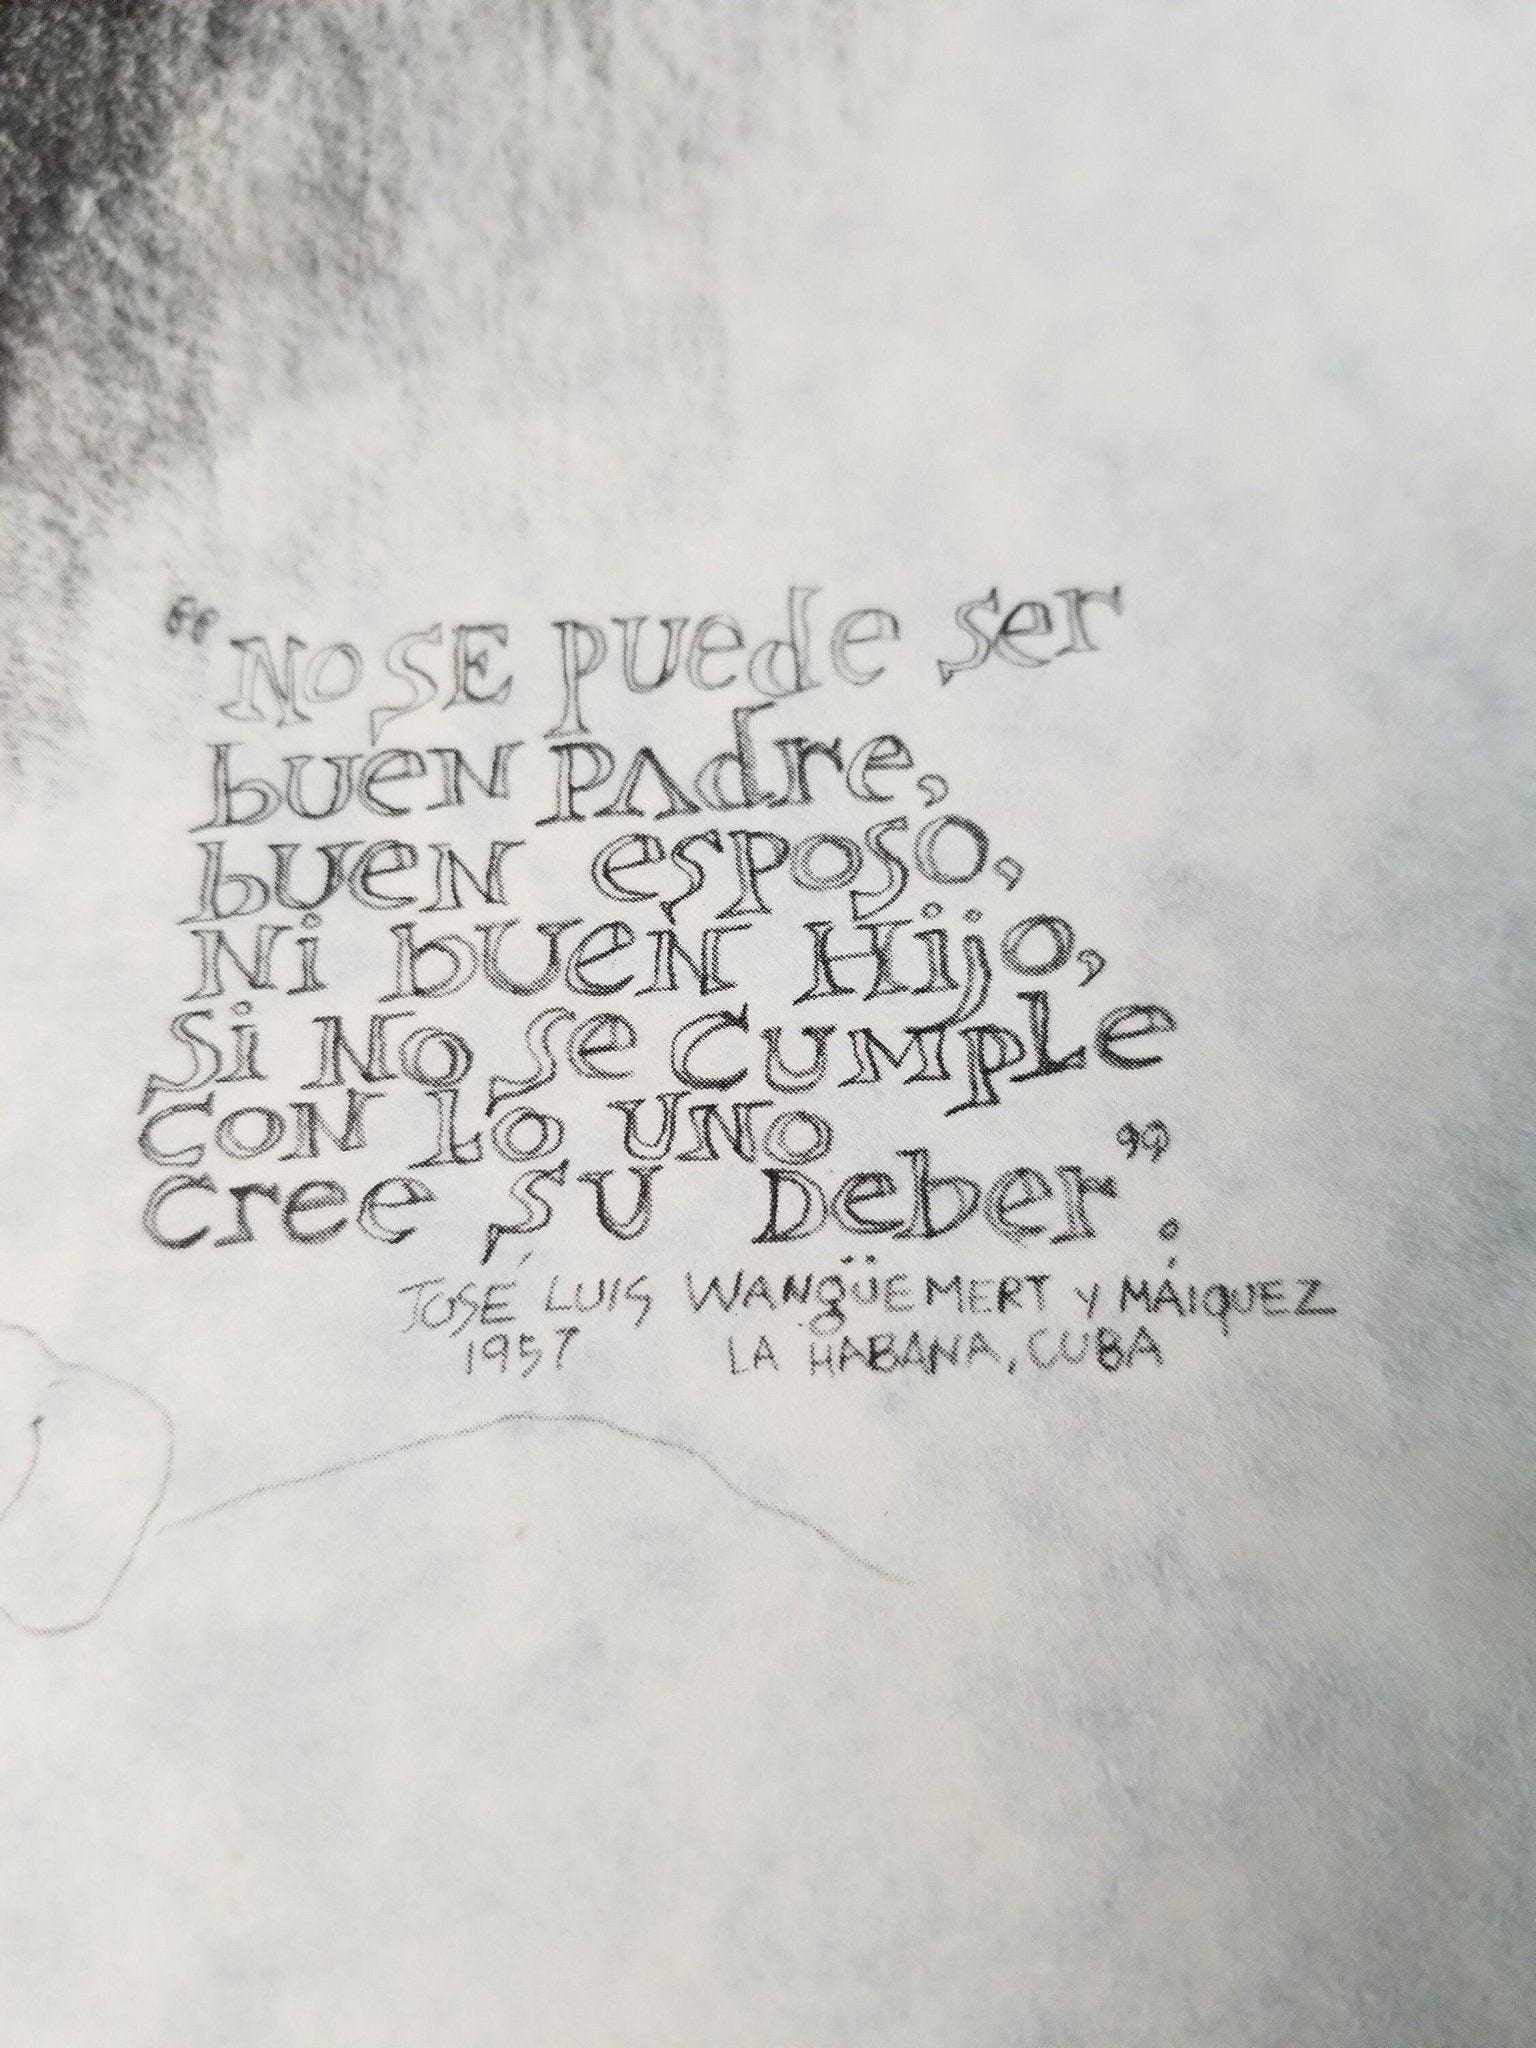 “NO SE puede ser
buen padre,
buen esposo,
Ni buen Hijo,
Si No se Cumple
con lo uno
cree su Deber”.
JOSÉ LUIS WANgÜEMERT y MÁIQUEZ
1957 LA HABANA, CUBA